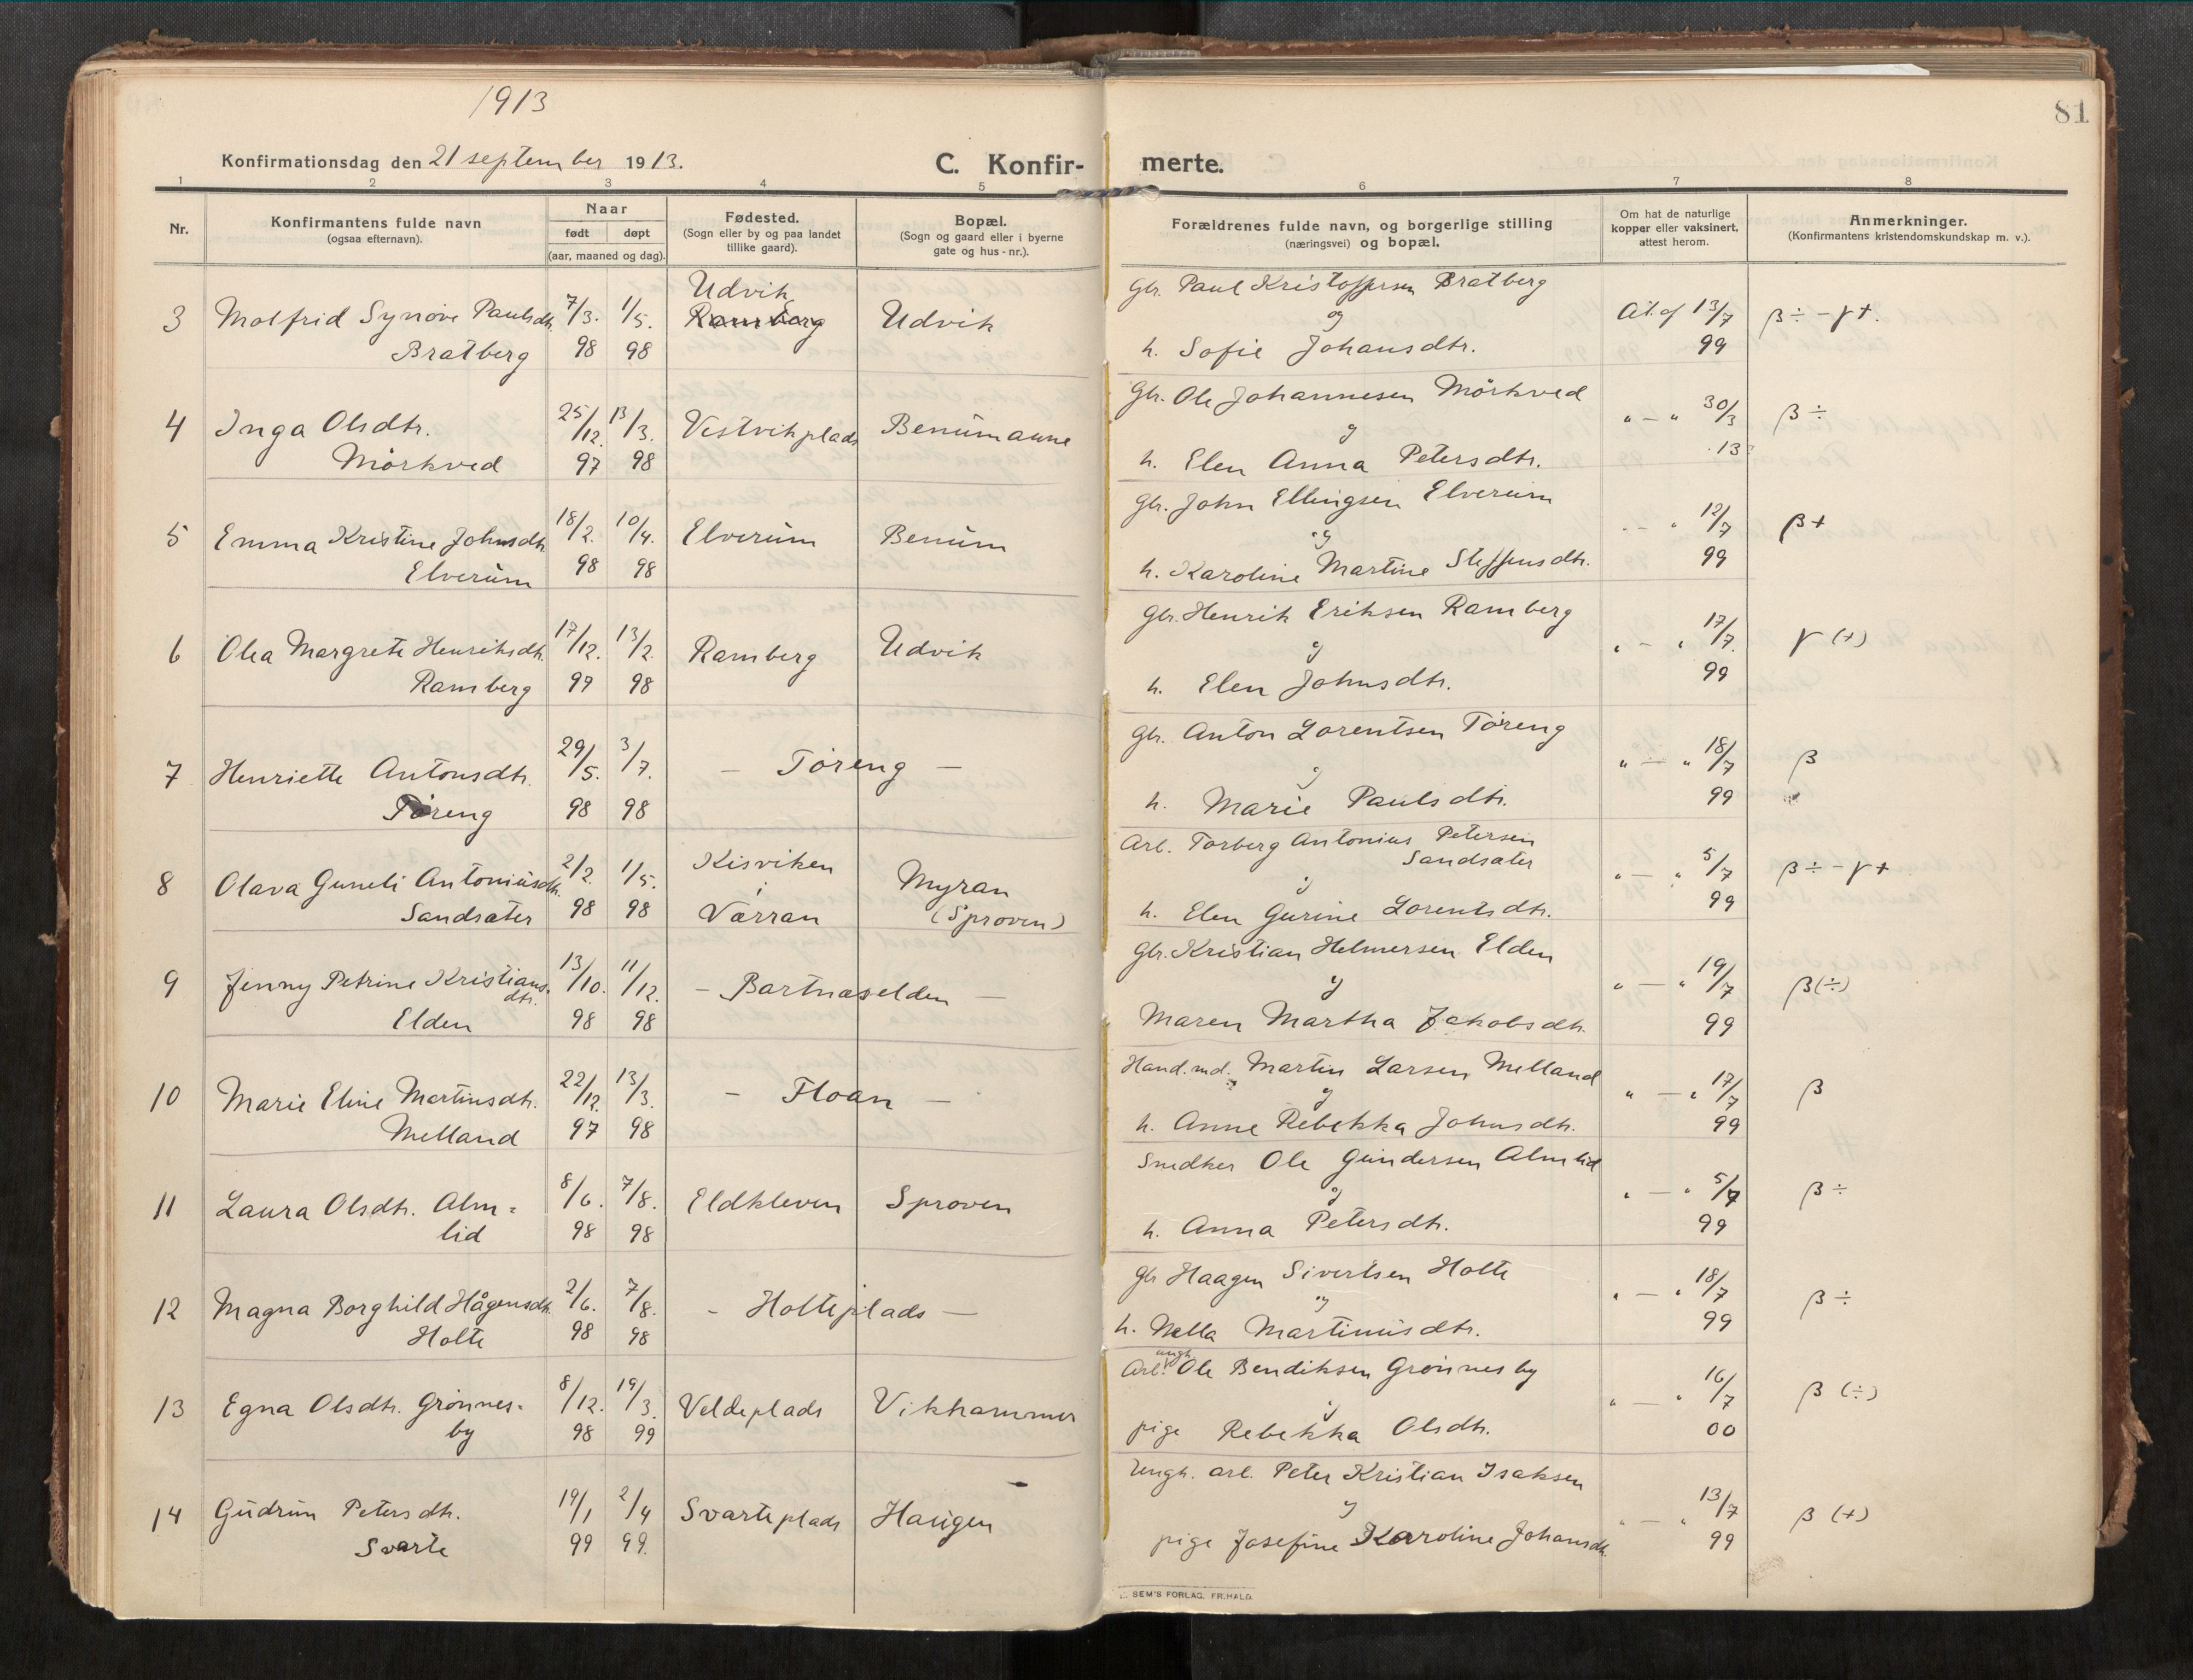 1913
81
Konfirmationsdag den 21 september 1913.
C. Konfir-merte.
1 2 3 4 5 6 7 8
Nr.
Konfirmantens fulde navn
(ogsaa efternavn).
Naar
født døpt
(aar, maaned og dag).
Fødested.
(Sogn eller by og paa landet
tillike gaard).
Bopæl.
(Sogn og gaard eller i byerne
gate og hus-nr.).
Forældrenes fulde navn, og borgerlige stilling
(næringsvei) og bopæl.
Om hat de naturlige
kopper eller vaksinert,
attest herom.
Anmerkninger.
(Konfirmantens kristendomskundskap m. v.).
Udvik Gbr. Paul Kristoffersen Bratberg
3 Molfrid Synöve Paulsdtr. 7/3. 1/5. Ramberg Udvik og At. af 13/7 β÷-γ+.
Bratberg 98 98 h. Sofie Johansdtr. 99
Gbr. Ole Johannesen Mörkved
4 Inga Olsdtr. 25/12. 13/3. Vestvikplads Benümaune og " — " 30/3 β÷
Mörkved 97 98 h. Elen Anna Petersdtr. 13
Gbr. John Ellingsen Elverüm
5 Emma Kristine Johnsdtr. 18/2. 10/4. Elverüm Benüm og " — " 12/7 β+
Elverüm 98 98 h. Karoline Martine Steffensdtr. 99
Gbr. Henrik Eriksen Ramberg
6 Olea Margrete Henriksdtr. 17/12. 13/2. Ramberg Udvik og " — " 17/7. γ (+)
Ramberg 97 98 h. Elen Johnsdtr. 99
Gbr. Anton Lorentsen Töreng
7 Henriette Antonsdtr. 29/5. 3/7. — Töreng — og " — " 18/7 β
Töreng 98 98 h. Marie Paulsdtr. 99
Arb. Torberg Antonius Petersen
Kisviken Sandsæter
8 Olava Guneli Antoniüsdtr. 2/2. 1/5. i Myran og " — " 5/7 β÷-γ+
Sandsæter 98 98 Værran (Sproven) h. Elen Gurine Lorentsdtr. 99
Gbr. Kristian Helmersen Elden
9 Jenny Petrine Kristians- 13/10. 11/12. — Bartnaselden — og " — " 19/7 β(÷)
dtr.
Elden 98 98 Maren Martha Jakobsdtr. 99
Hand.md. Martin Larsen Melland
10 Marie Eline Martinsdtr. 22/12. 13/3. — Floan — og " — " 17/7 β
Melland 97 98 h. Anne Rebekka Johnsdtr. 99
Snedker Ole Gündersen Almlid
11 Laura Olsdtr. Alm= 8/6. 7/8. Eldkleven Sproven og " — " 5/7 β÷
lid 98 98 h. Anna Petersdtr. 99
Gbr Haagen Sivertsen Holte
12 Magna Borghild Hågensdtr. 2/6. 7/8. — Holteplads — og " — " 18/7 β÷
Holte 98 98 h. Nella Martiniusdtr. 99
ungk.
Arb. Ole Bendiksen Grönnesby
13 Egna Olsdtr. Grönnes= 8/12. 19/3. Veldeplads Vikhammer og " — " 16/7 β (÷)
by 98 99 pige Rebekka Olsdtr. 00
Ungk. arb. Peter Kristian Isaksen
14 Güdrün Petersdtr. 19/1 2/4 Svarteplads Haugen og " — " 13/7 β (+)
Svarte 99 99. pige Josefine Karoline Johansdtr. 99
SEM'S FORLAG, FR.HALD.